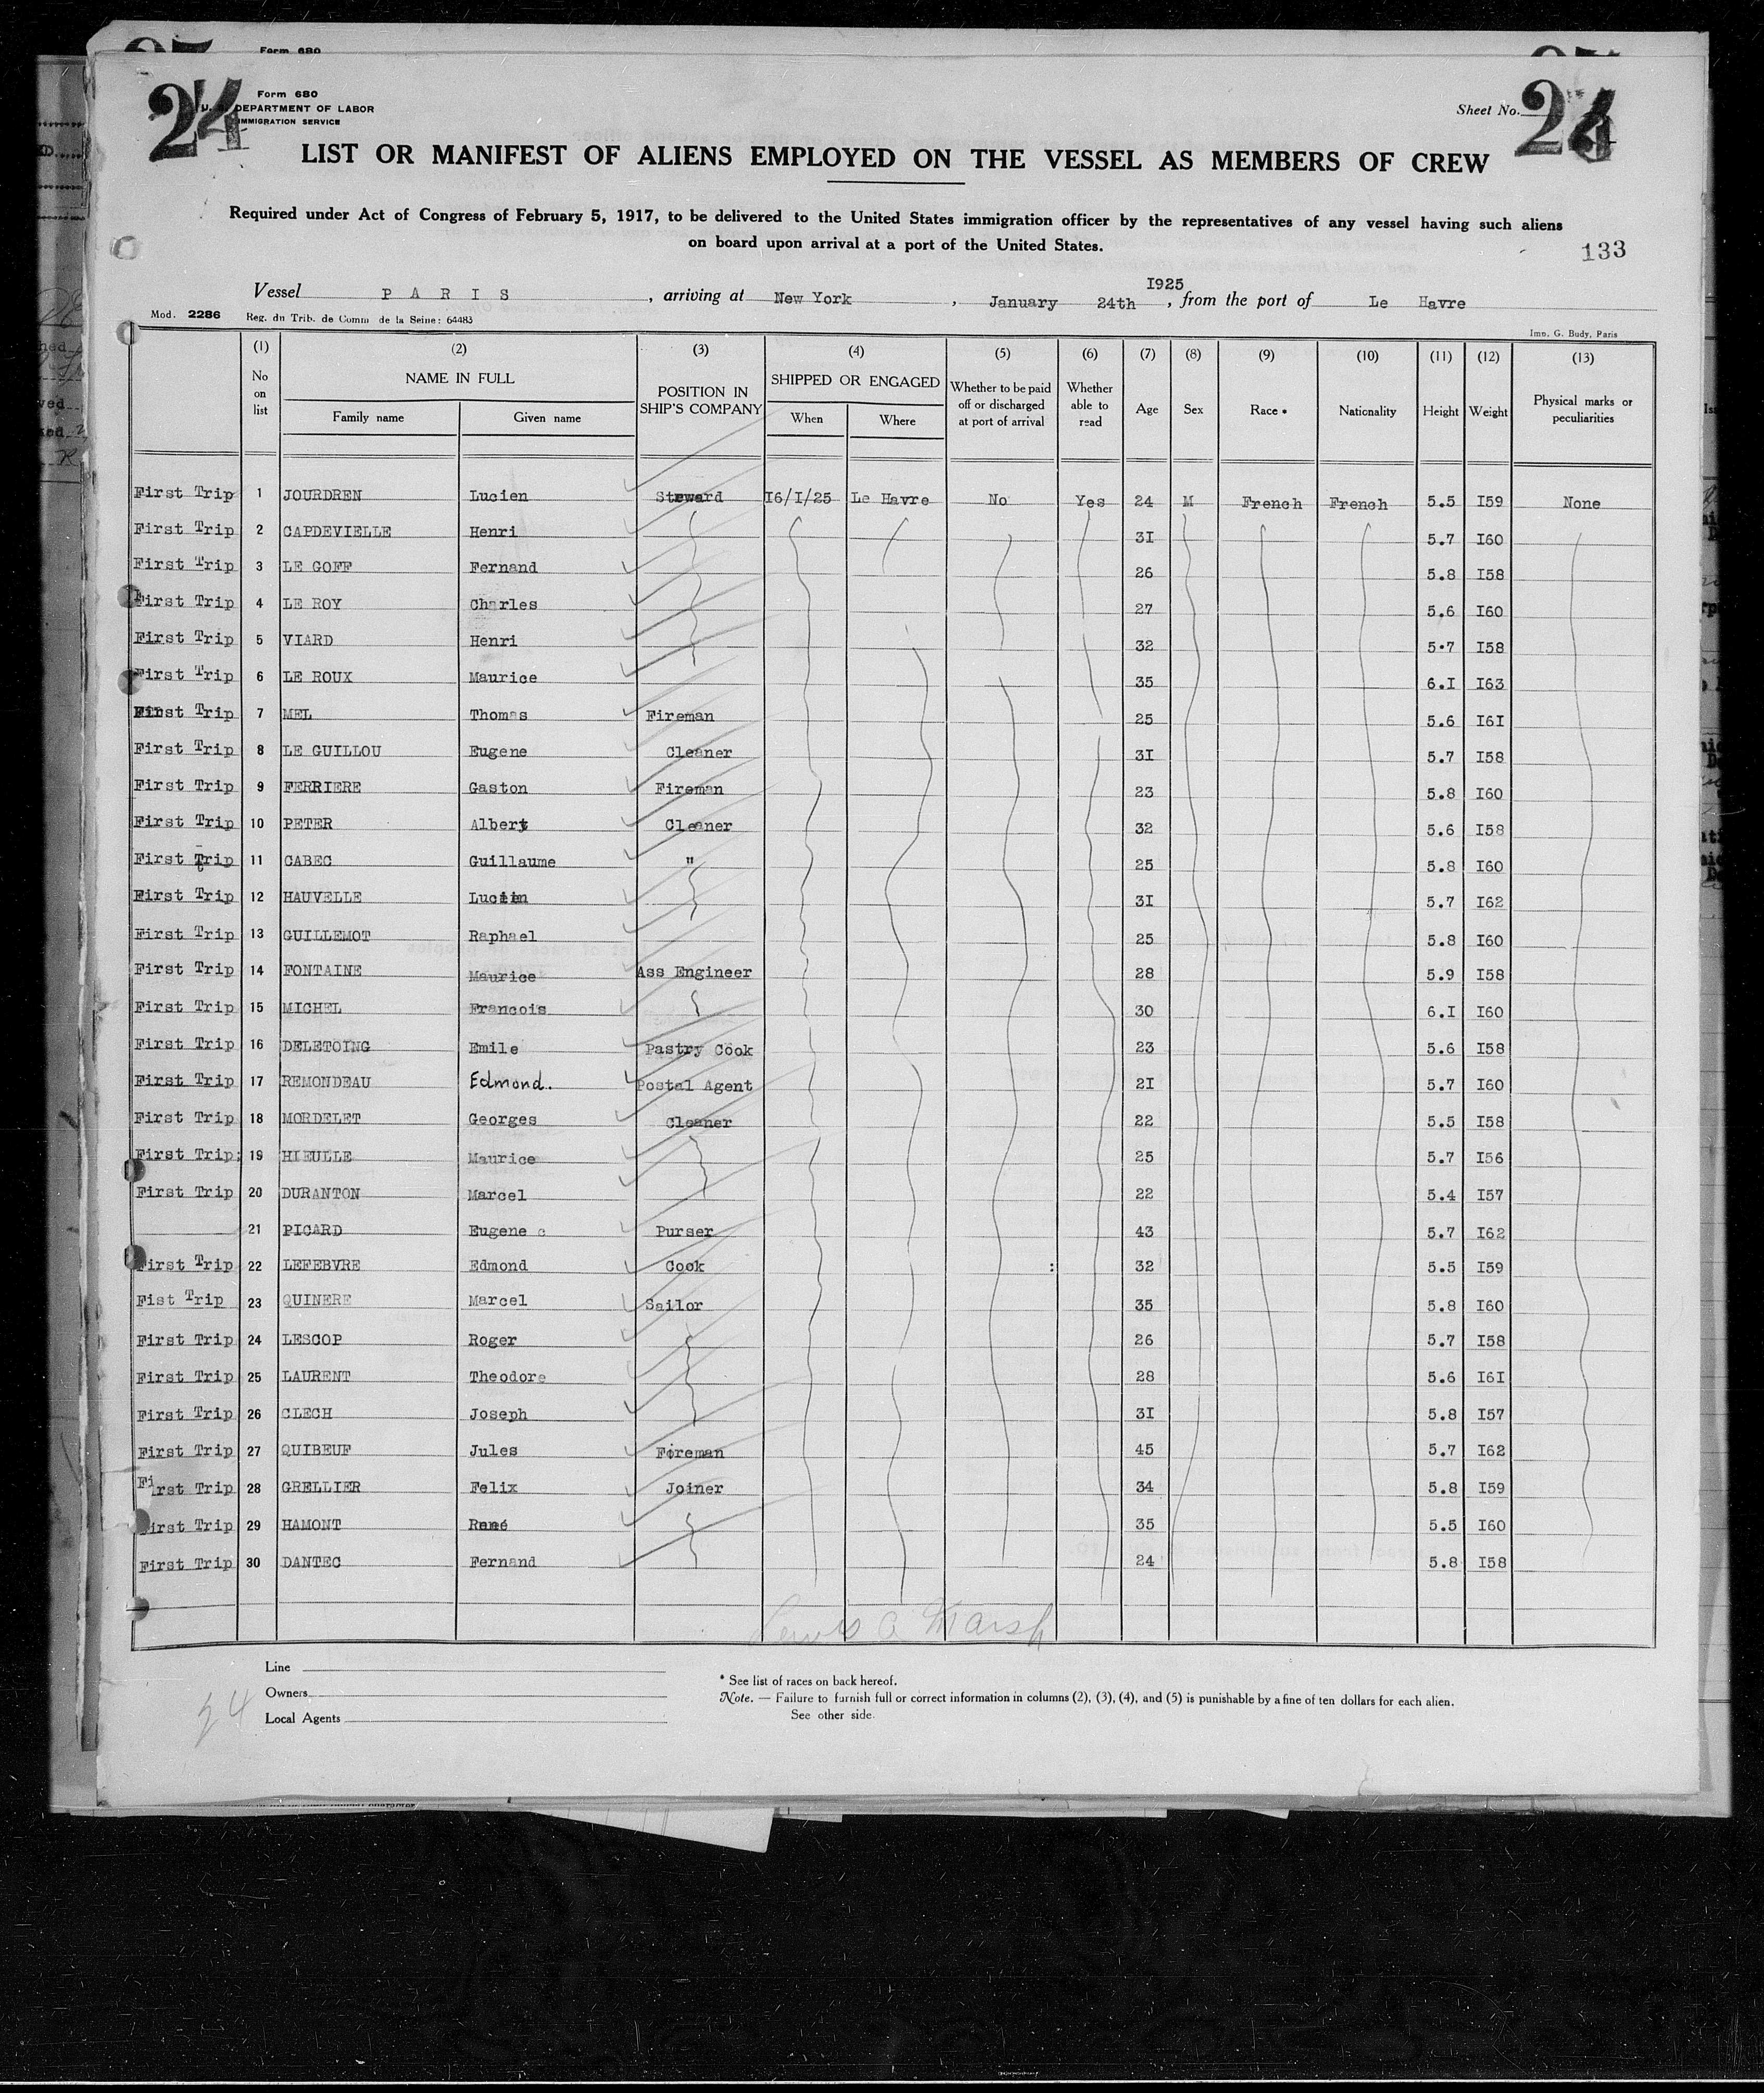 Form 680
24
Form 680
U. S. DEPARTMENT OF LABOR
IMMIGRATION SERVICE
Sheet No. 24
LIST OR MANIFEST OF ALIENS EMPLOYED ON THE VESSEL AS MEMBERS OF CREW
Required under Act of Congress of February 5, 1917, to be delivered to the United States immigration officer by the representatives of any vessel having such aliens
on board upon arrival at a port of the United States.
133
Vessel P A R I S , arriving at New York , January 24th 1925 , from the port of Le Havre
Mod. 2286 Reg. du Trib. de Comm de la Seine: 64483
Imp. G. Budy, Paris
(1) (2) (3) (4) (5) (6) (7) (8) (9) (10) (11) (12) (13)
No on list NAME IN FULL Family name Given name POSITION IN SHIP'S COMPANY SHIPPED OR ENGAGED When Where Whether to be paid off or discharged at port of arrival Whether able to read Age Sex Race • Nationality Height Weight Physical marks or peculiarities
First Trip 1 JOURDREN Lucien Steward I6/I/25 Le Havre No Yes 24 M French French 5.5 I59 None
First Trip 2 CAPDEVIELLE Henri 3I 5.7 I60
First Trip 3 LE GOFF Fernand 26 5.8 I58
First Trip 4 LE ROY Charles 27 5.6 I60
First Trip 5 VIARD Henri 32 5.7 I58
First Trip 6 LE ROUX Maurice 35 6.I I63
First Trip 7 MEL Thomas Fireman 25 5.6 I6I
First Trip 8 LE GUILLOU Eugene Cleaner 3I 5.7 I58
First Trip 9 FERRIERE Gaston Fireman 23 5.8 I60
First Trip 10 PETER Albert Cleaner 32 5.6 I58
First Trip 11 CABEC Guillaume " 25 5.8 I60
First Trip 12 HAUVELLE Lucien 3I 5.7 I62
First Trip 13 GUILLEMOT Raphael 25 5.8 I60
First Trip 14 FONTAINE Maurice Ass Engineer 28 5.9 I58
First Trip 15 MICHEL Francois 30 6.I I60
First Trip 16 DELETOING Emile Pastry Cook 23 5.6 I58
First Trip 17 REMONDEAU Edmond. Postal Agent 2I 5.7 I60
First Trip 18 MORDELET Georges Cleaner 22 5.5 I58
First Trip: 19 HIEULLE Maurice 25 5.7 I56
First Trip 20 DURANTON Marcel 22 5.4 I57
21 PICARD Eugene c Purser 43 5.7 I62
First Trip 22 LEFEBVRE Edmond Cook : 32 5.5 I59
Fist Trip 23 QUINERE Marcel Sailor 35 5.8 I60
First Trip 24 LESCOP Roger 26 5.7 I58
First Trip 25 LAURENT Theodore 28 5.6 I6I
First Trip 26 CLECH Joseph 3I 5.8 I57
First Trip 27 QUIBEUF Jules Foreman 45 5.7 I62
First Trip 28 GRELLIER Felix Joiner 34 5.8 I59
First Trip 29 HAMONT René 35 5.5 I60
First Trip 30 DANTEC Fernand 24 5.8 I58
Lewis A Marsh
Line
Owners
Local Agents
24
* See list of races on back hereof.
Note. — Failure to furnish full or correct information in columns (2), (3), (4), and (5) is punishable by a fine of ten dollars for each alien.
See other side.